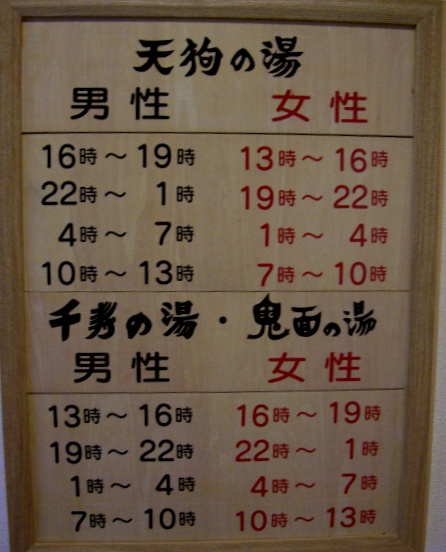 天狗の湯
男性 女性
16時～19時 13時～16時
22時～1時 19時～22時
4時～7時 1時～4時
10時～13時 7時～10時
千寿の湯・鬼面の湯
男性 女性
13時～16時 16時～19時
19時～22時 22時～1時
1時～4時 4時～7時
7時～10時 10時～13時